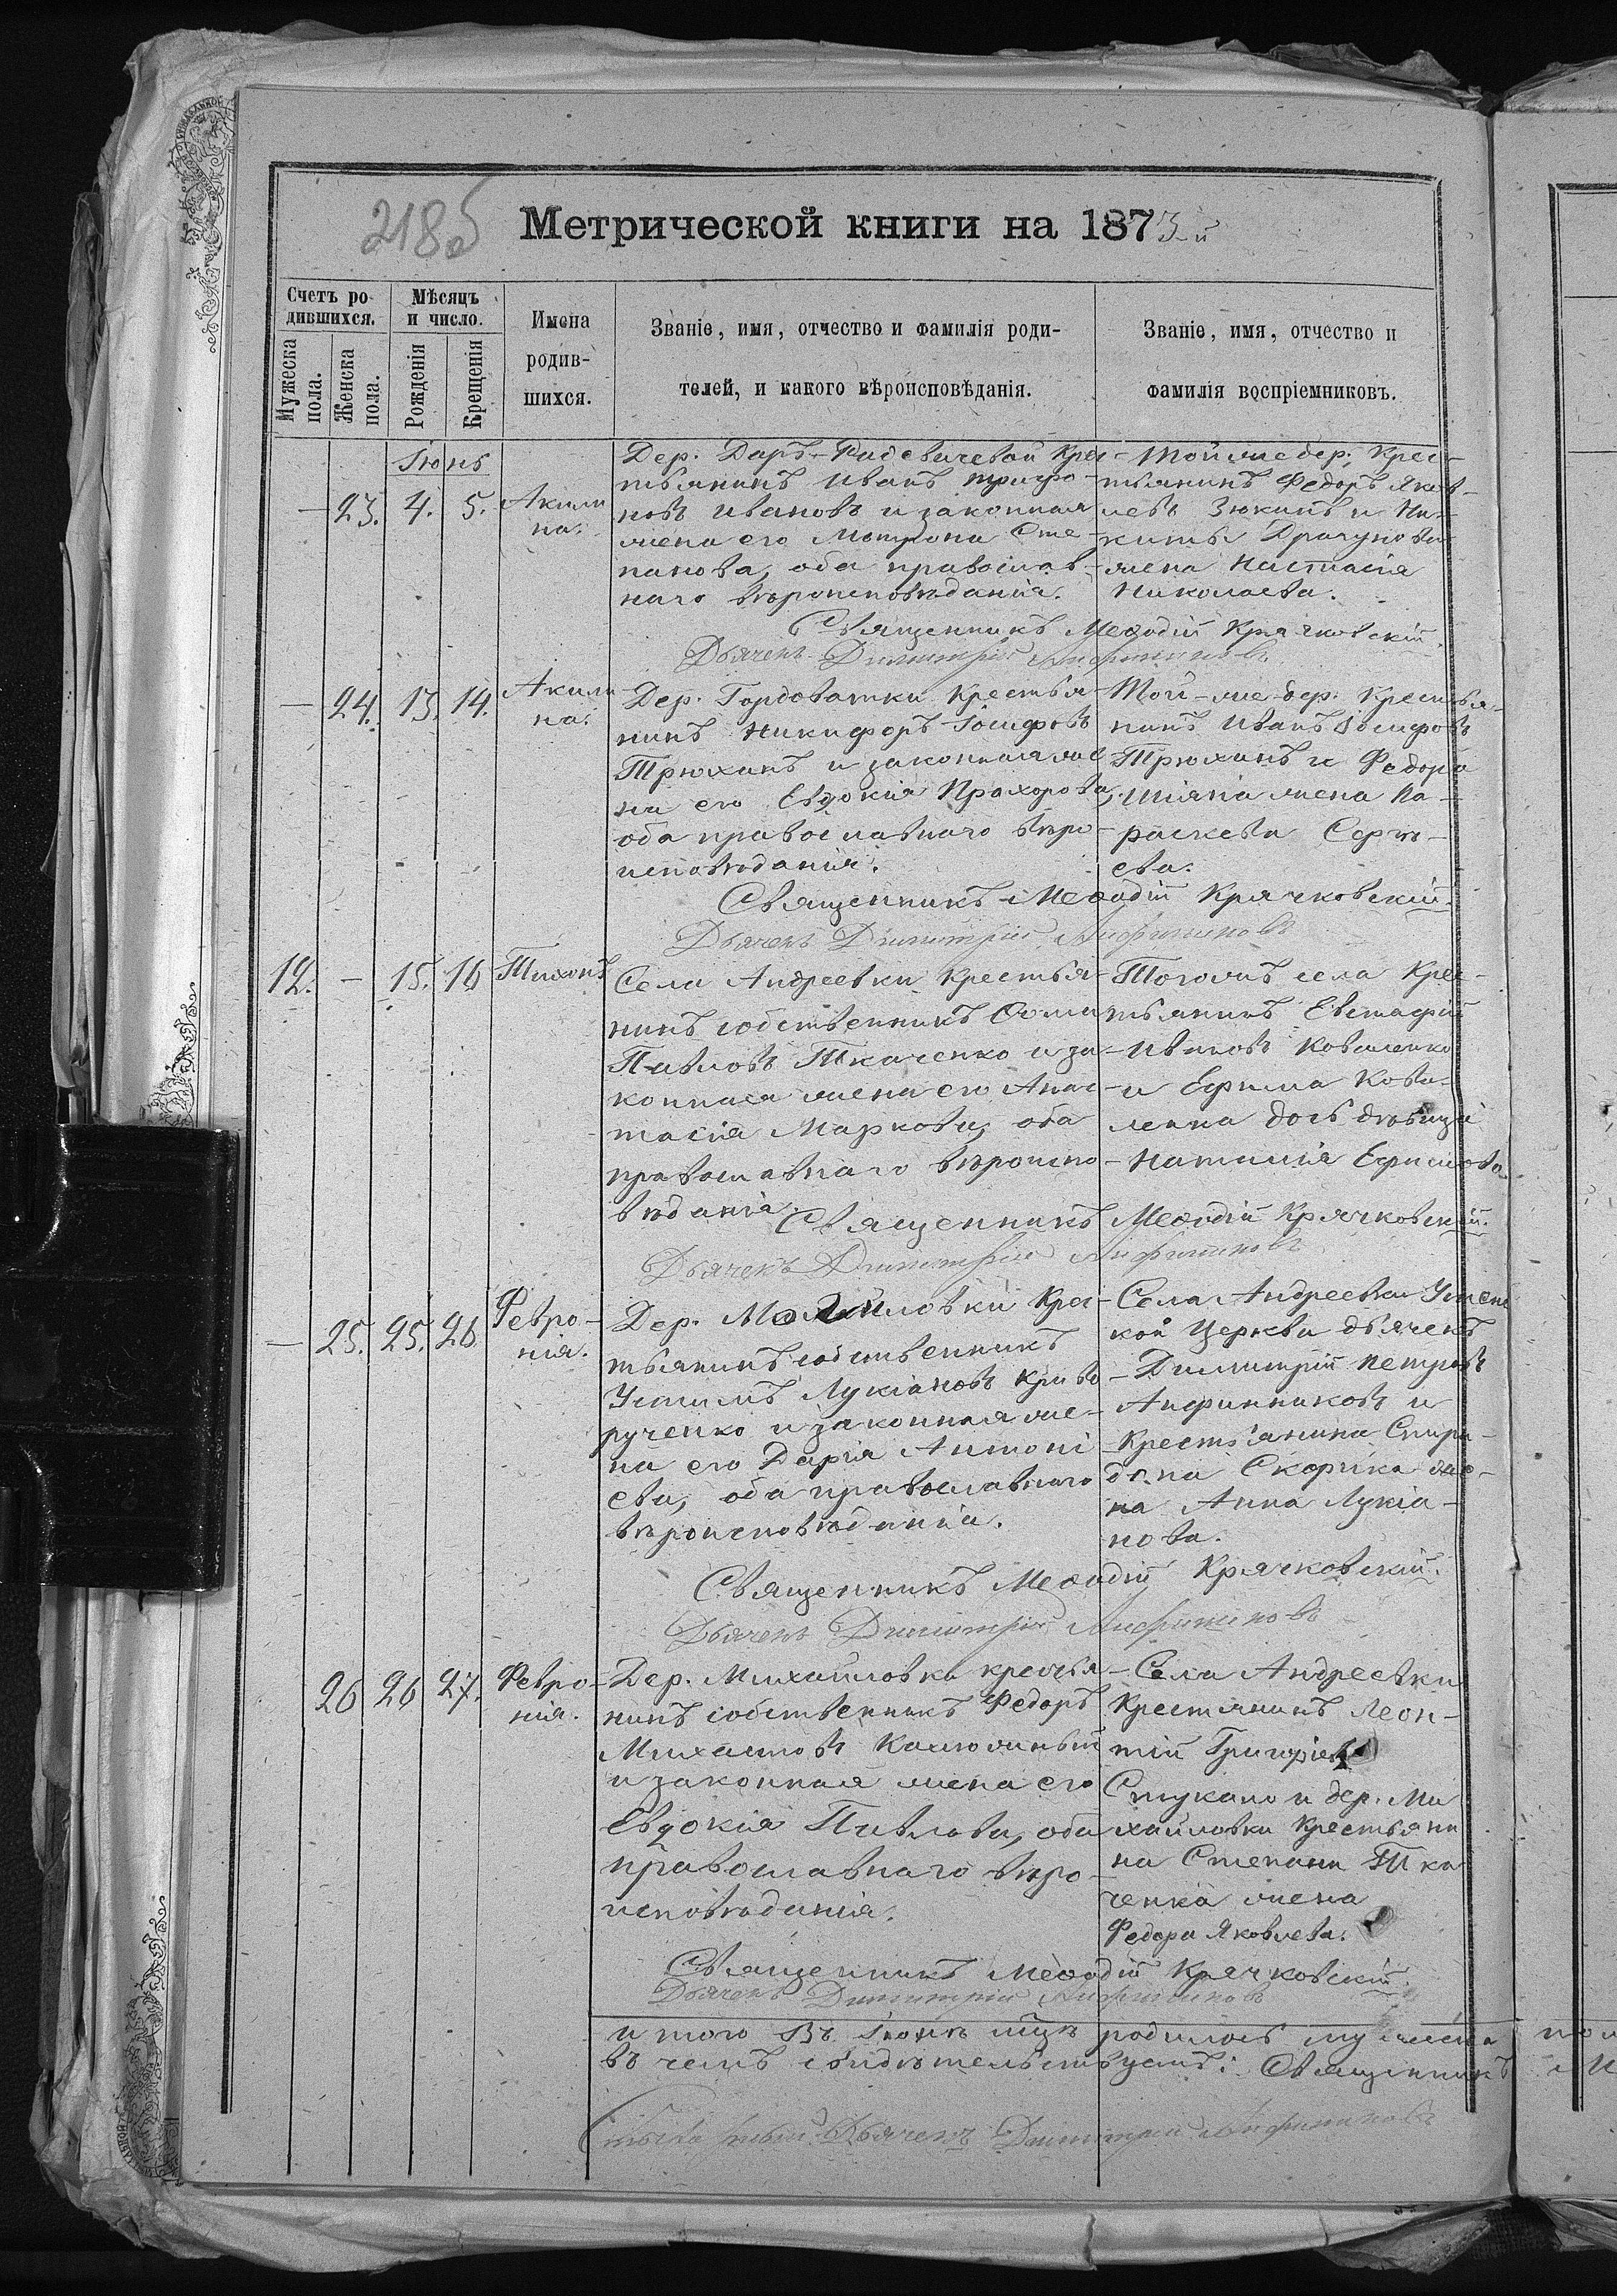 218б
Метрической книги на 1873-й
Счетъ ро-
дившихся.
Мужеска
пола.
Женска
пола.
Мѣсяцъ
и число.
Рожденія
Крещенія
Имена
родив-
шихся.
Званіе, имя, отчество и фамилія роди-
телей, и какого вѣроисповѣданія.
Званіе, имя, отчество и
фамилія воспріемниковъ.
Іюнь
— 23. 4. 5.
Акили
на.
Дер. Даръ-Фадевичевой Крес-
тьянинъ Иванъ
новъ Ивановъ и законная
жена его Матрона Сте-
панова, оба православ-
наго вѣроисповѣданія.
Той же дер. Крес-
тьянинъ Федоръ Яков-
левъ Зюкинъ и Ни-
киты Драгунова
жена Настасія
Николаева.
Священникъ Меѳодій Крячковскій
Дьячекъ Димитрій Анфиниковъ
— 24. 13. 14.
Акили
на.
Дер. Гордоватки Крестья-
нинъ Никифоръ Іосифовъ
Трюханъ и законная же
на его Евдокія Прохорова,
оба православнаго вѣро-
исповѣданія.
Той-же дер. Крестья-
нинъ Иванъ Іосифовъ
Трюханъ и Федора
жена Па-
раскева Сергѣ-
ева.
Священникъ Меѳодій Крячковскій.
Дьячекъ Димитрій Анфиниковъ
12. — 15. 16
Тихонъ
Села Андреевки Крестья-
нинъ собственникъ Ѳома
Павловъ Ткаченко и за-
конная жена его Анас-
тасія Маркова, оба
православнаго вѣроиспо-
вѣданія.
Тогожъ села Крес-
тьянинъ Евстафій
Ивановъ Коваленко
и Ефима Кова-
ленка дочь дѣвица
Наталія Ефимова.
Священникъ Меѳодій Крячковскій.
Дьячекъ Димитрій Анфиниковъ
— 25. 25. 26
Февро-
нія.
Дер. Михайловки Крес-
тьянинъ собственникъ
Устимъ Лукіановъ Криво
рученко и законная же-
на его Дарія Антоні
ева, оба православнаго
вѣроисповѣданія.
Села Андреевки Успен
кой Церкви дьячекъ
Димитрій Петровъ
Анфинниковъ и
Крестьянина Спири-
дона Скорика же-
на Анна Лукіа-
нова.
Священникъ Меѳодій Крячковскій.
Дьячекъ Димитрій Анфиниковъ
26 26 27.
Февро-
нія.
Дер. Михайловки крестья-
нинъ собственникъ Федоръ
Михайловъ Калюжный
и законная жена его
Евдокія Павлова, оба
православнаго вѣро-
исповѣданія.
Села Андреевки
Крестянинъ Леон-
тій Григоріевъ
Стукало и дер. Ми
хайловки Крестьяни
на Степана Тка
ченка жена
Федора Яковлева.
Священникъ Меѳодій Крячковскій.
Дьячекъ Димитрій Анфиниковъ
итого въ Іюнѣ мцѣ родилось мужеска
въ чемъ свидѣтельствуетъ: Священникъ
Дьячекъ Димитрій Анфиниковъ